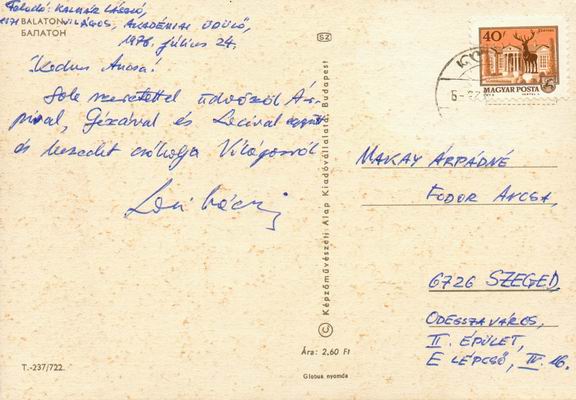 Feladó: KALMÁR LÁSZLÓ,
8171 BALATONVILÁGOS, AKADÉMIAI ÜDÜLŐ,
БАЛАТОН
1976. július 24.
Kedves Ancsa!
Sok szeretettel üdvözöl Ár-
páddal, Gézával és Lacival együtt
és kezedet csókolja Világosról
Laci bácsi
T.-237/722.
SZ
Képzőművészeti Alap Kiadóvállalata, Budapest
Ára: 2,60 Ft
Globus nyomda
40f
MAGYAR POSTA
MAKAY ÁRPÁDNÉ
FODOR ANCSA,
6726 SZEGED,
ODESSZAVÁROS,
II. ÉPÜLET,
E LÉPCSŐ, IV. 16.